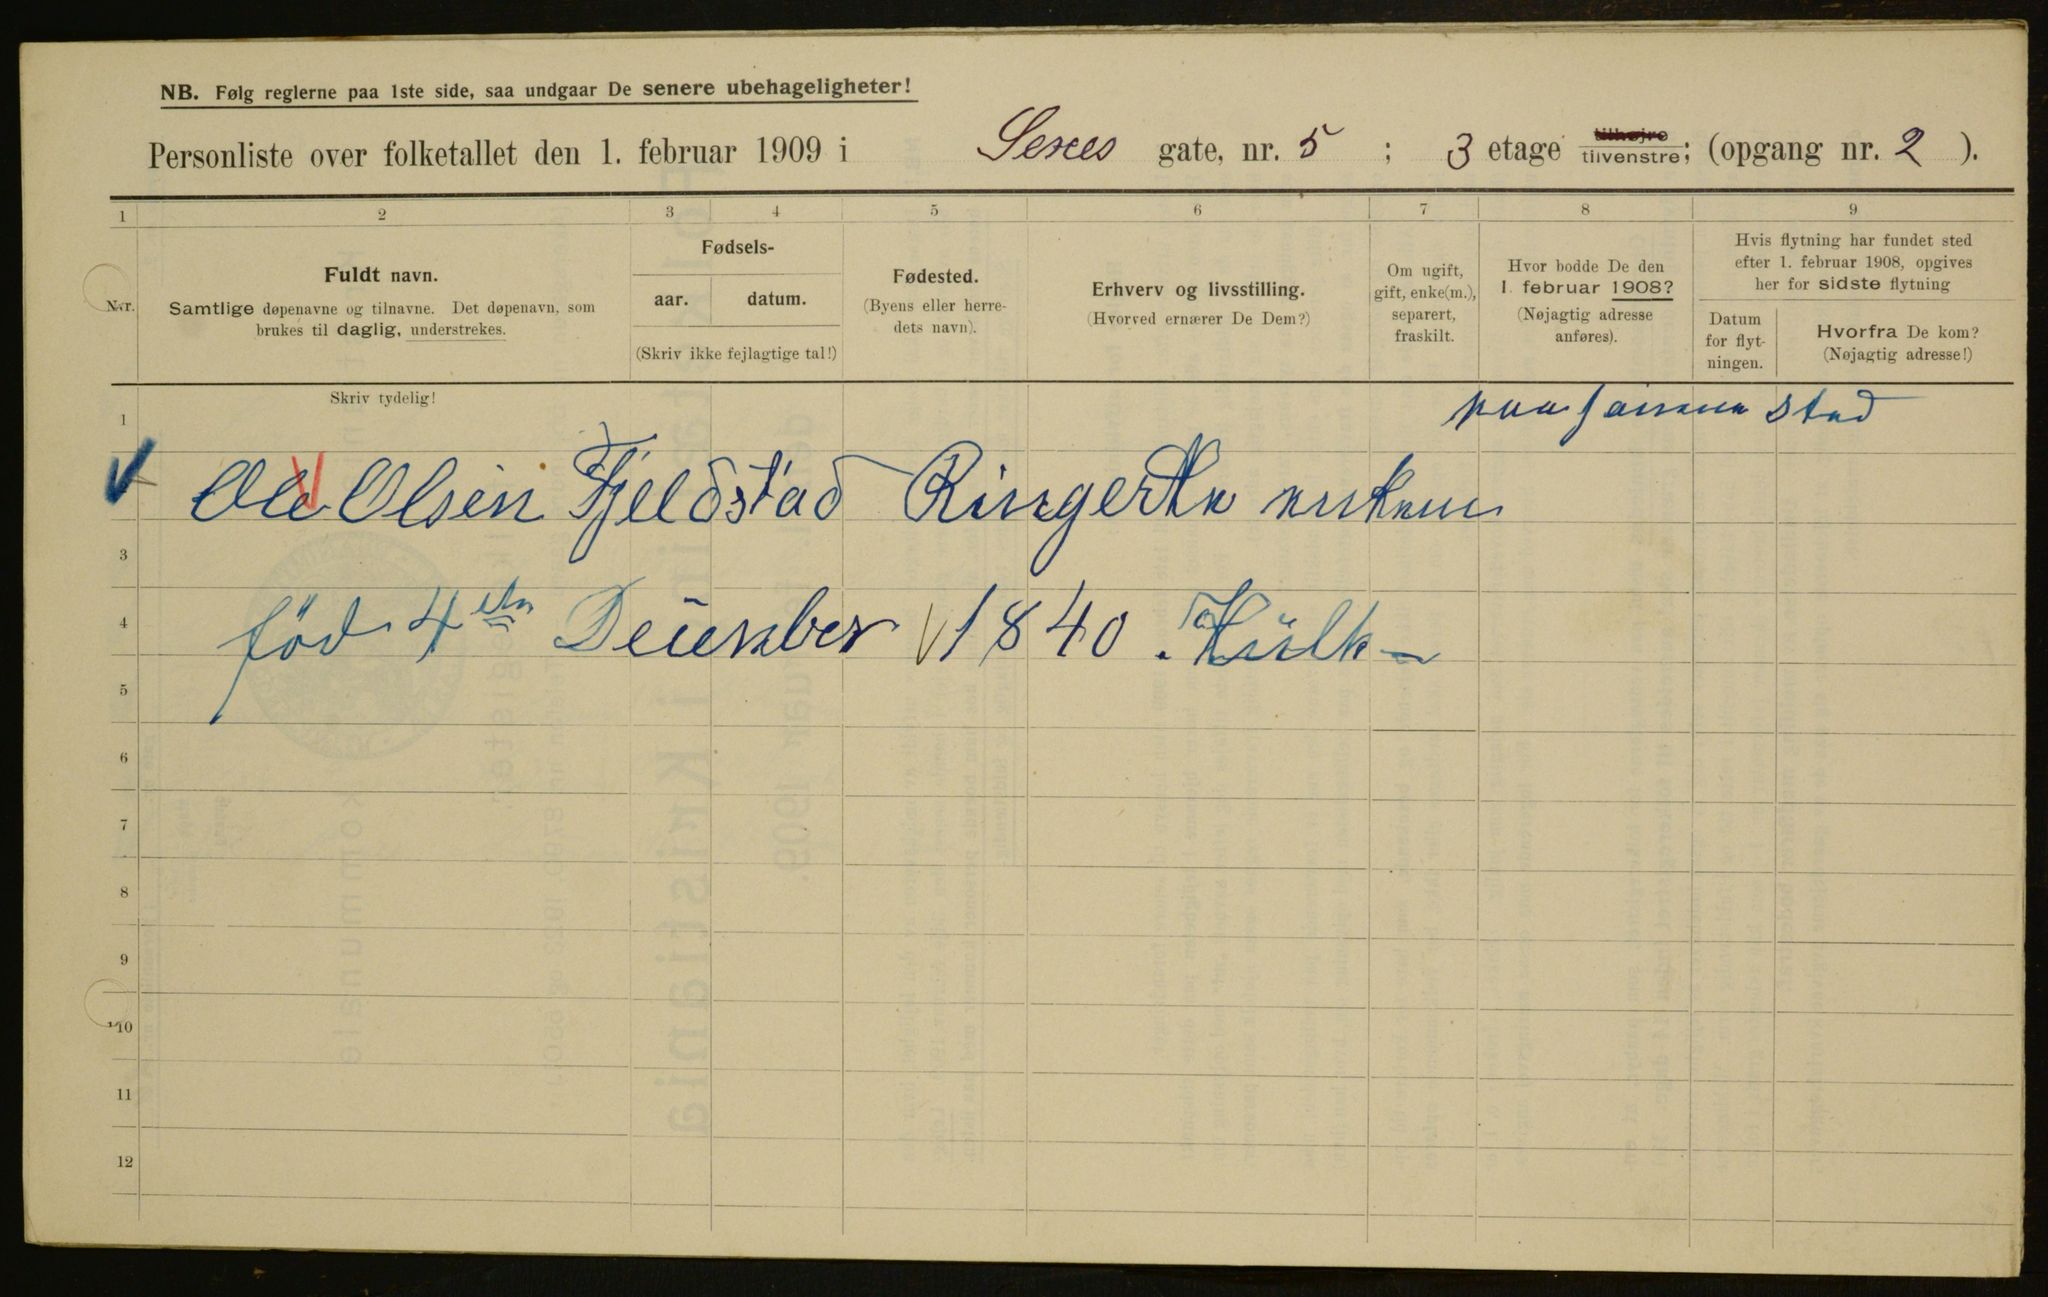 NB. Følg reglerne paa 1ste side, saa undgaar De senere ubehageligheter!
Personliste over folketallet den 1. februar 1909 i gate, nr. 5 ; 3 etage tilhøjre tilvenstre; (opgang nr. 2 ).
1 2 3 4 5 6 7 8 9
Nr.
Fuldt navn.
Samtlige døpenavne og tilnavne. Det døpenavn, som
brukes til daglig, understrekes.
Fødsels-
aar. datum.
(Skriv ikke fejlagtige tal!)
Fødested.
(Byens eller herre-
dets navn).
Erhverv og livsstilling.
(Hvorved ernærer De Dem?)
Om ugift,
gift, enke(m.),
separert,
fraskilt.
Hvor bodde De den
1. februar 1908?
(Nøjagtig adresse
anføres).
Hvis flytning har fundet sted
efter 1. februar 1908, opgives
her for sidste flytning
Datum
for flyt-
ningen.
Hvorfra De kom?
(Nøjagtig adresse!)
Skriv tydelig!
1 paa samme stad
Ole Olsen Fjeldstad Ringerike enkem
3
4 föd 4de December 1840.
5
6
7
8
9
10
11
12